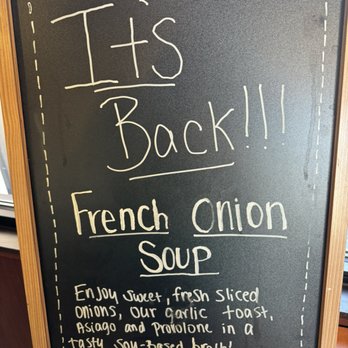 It's
Back!!!
French Onion
Soup
Enjoy sweet, fresh sliced
onions, our garlic toast,
Asiago and Provolone in a
tasty soy-based broth!